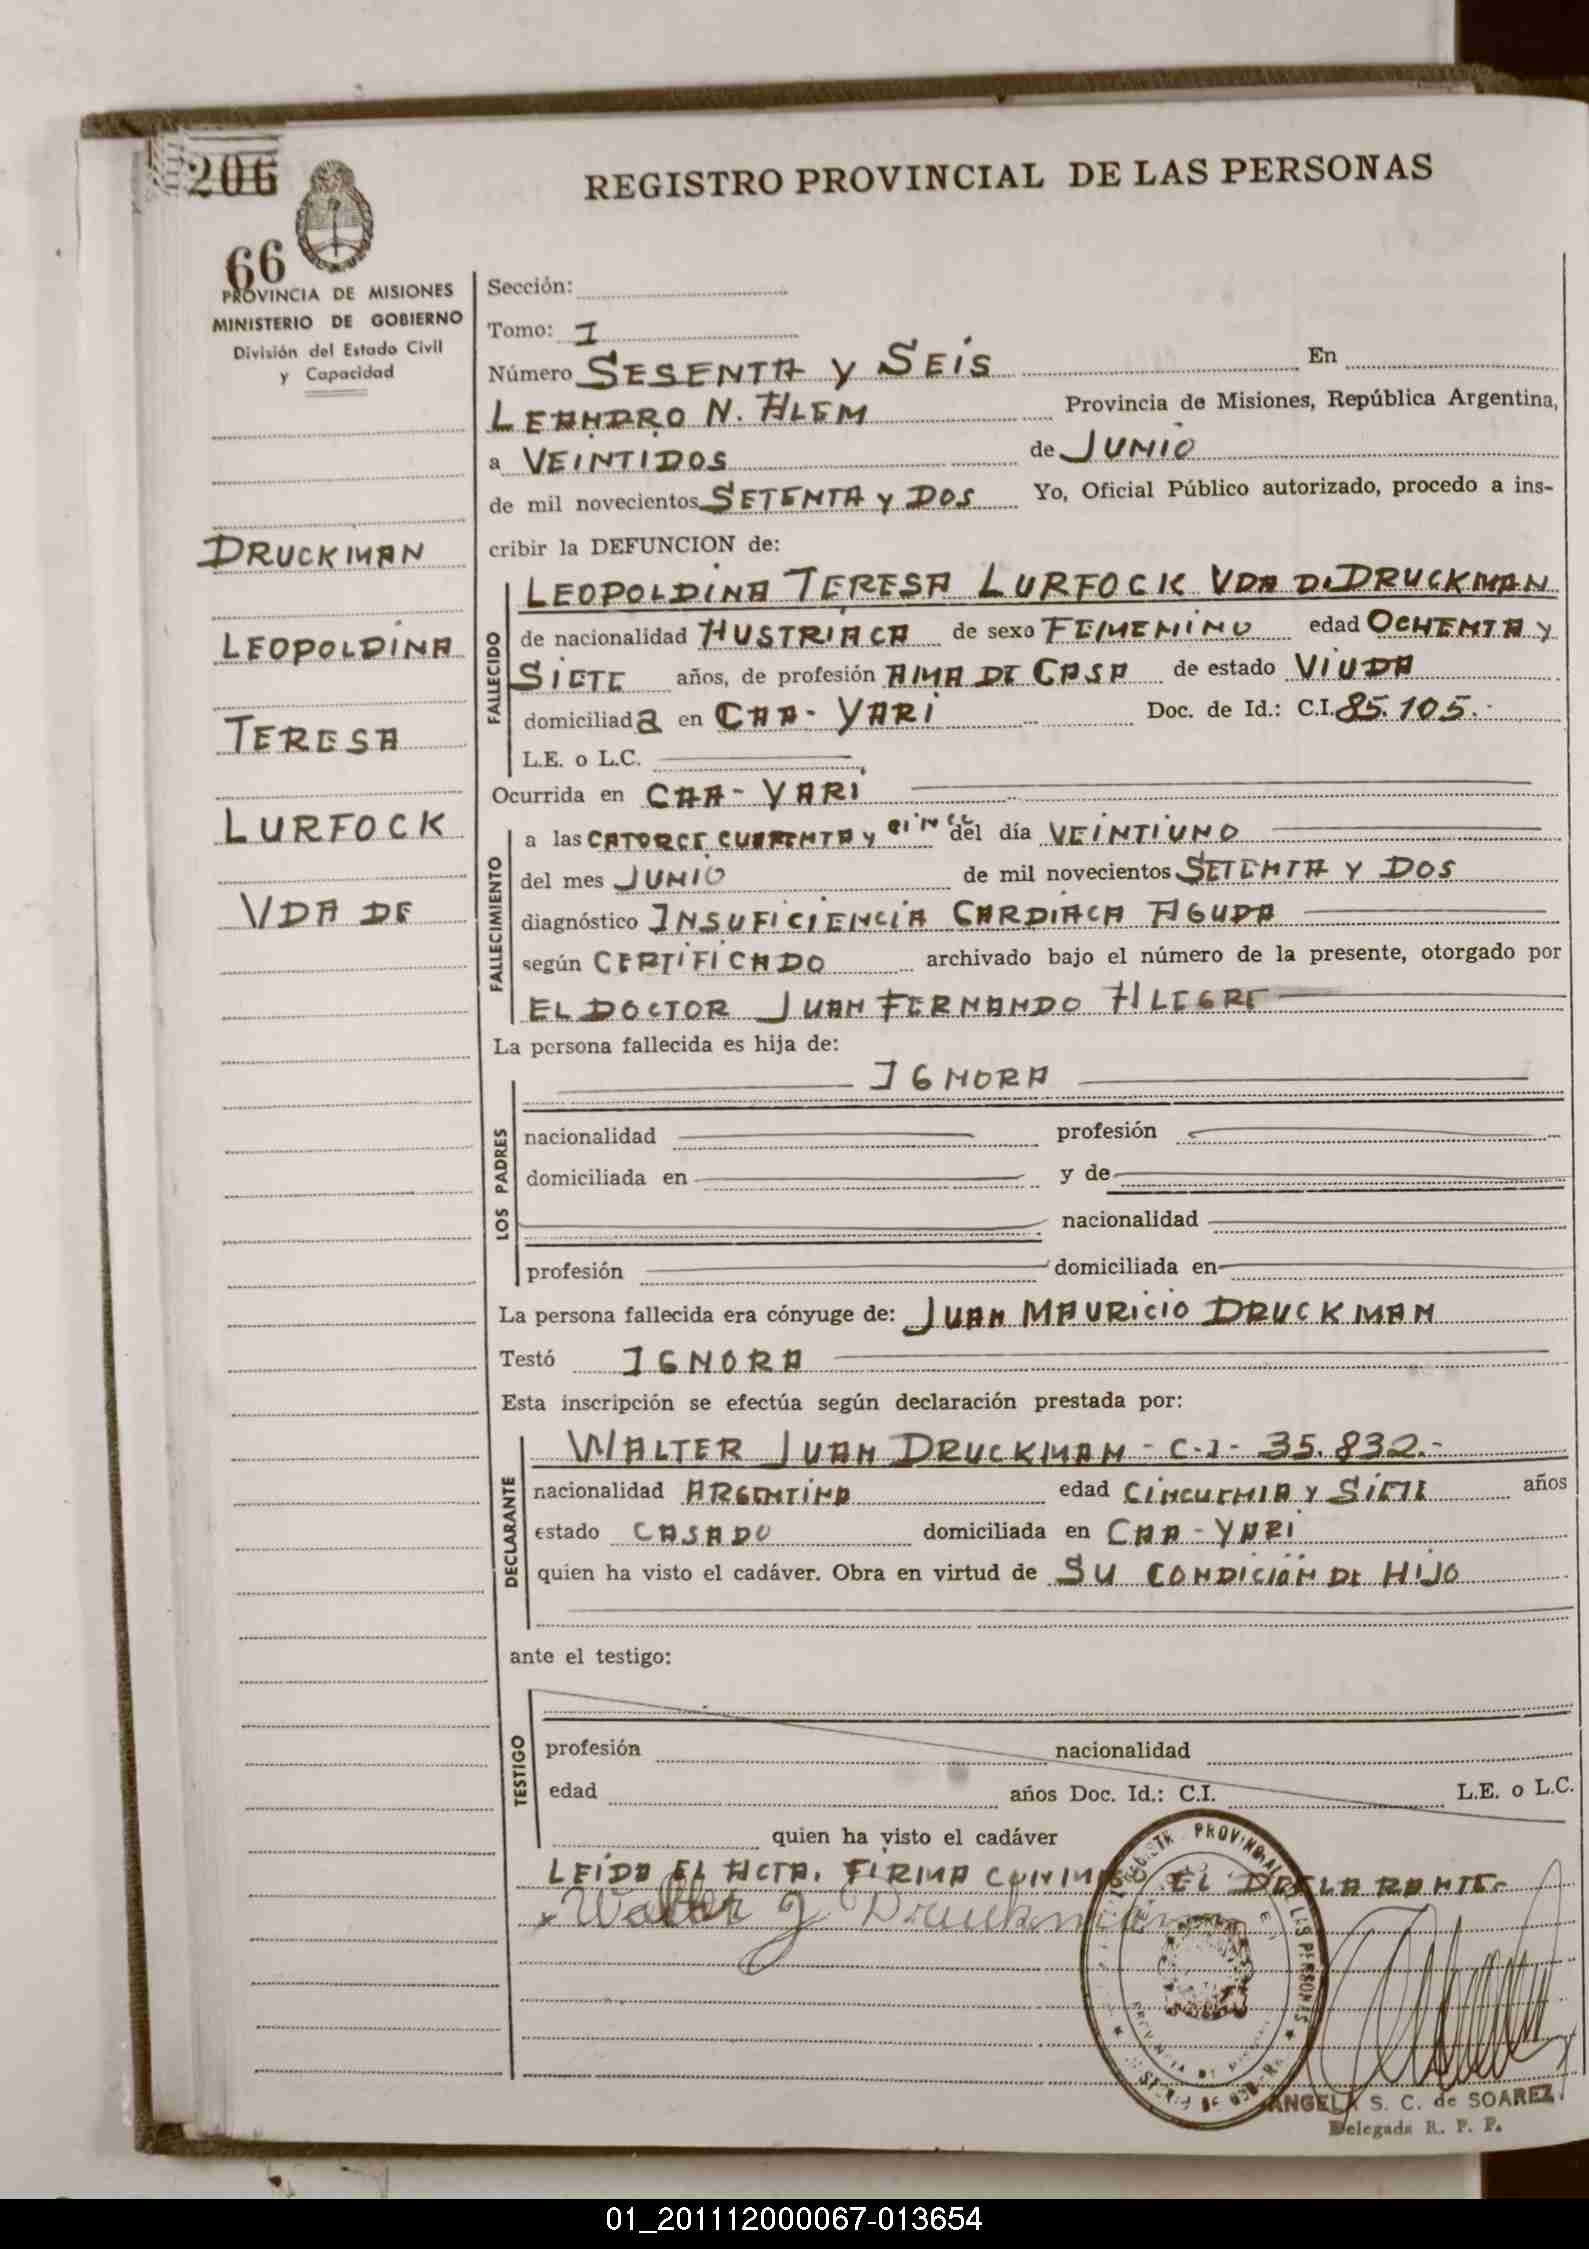 206
REGISTRO PROVINCIAL DE LAS PERSONAS
66
PROVINCIA DE MISIONES
MINISTERIO DE GOBIERNO
División del Estado Civil
y Capacidad
DRUCKMAN
LEOPOLDINA
TERESA
LURFOCK
VDA DE
Sección:
Tomo: I
Número SESENTA Y SEIS En
LEANDRO N. ALEM Provincia de Misiones, República Argentina,
a VEINTIDOS de JUNIO
de mil novecientos SETENTA Y DOS Yo, Oficial Público autorizado, procedo a ins-
cribir la DEFUNCION de:
FALLECIDO
LEOPOLDINA TERESA LURFOCK VDA D. DRUCKMAN
de nacionalidad AUSTRIACA de sexo FEMENINO edad OCHENTA Y
SIETE años, de profesión AMA DE CASA de estado VIUDA
domiciliada en CAA-YARI Doc. de Id.: C.I. 85.105.-
L.E. o L.C.
Ocurrida en CAA-YARI
FALLECIMIENTO
a las CATORCE CUARENTA Y CINCO del día VEINTIUNO
del mes JUNIO de mil novecientos SETENTA Y DOS
diagnóstico INSUFICIENCIA CARDIACA AGUDA
según CERTIFICADO archivado bajo el número de la presente, otorgado por
EL DOCTOR JUAN FERNANDO ALEGRE
La persona fallecida es hija de:
LOS PADRES
IGNORA
nacionalidad profesión
domiciliada en y de
nacionalidad
profesión domiciliada en
La persona fallecida era cónyuge de: JUAN MAURICIO DRUCKMAN
Testó IGNORA
Esta inscripción se efectúa según declaración prestada por:
DECLARANTE
WALTER JUAN DRUCKMAN - C.I - 35.832.-
nacionalidad ARGENTINA edad CINCUENTA Y SIETE años
estado CASADO domiciliada en CAA-YARI
quien ha visto el cadáver. Obra en virtud de SU CONDICIÓN DE HIJO
ante el testigo:
TESTIGO
profesión nacionalidad
edad años Doc. Id.: C.I. L.E. o L.C.
quien ha visto el cadáver
LEIDA EL ACTA, FIRMA CONMIGO EL DECLARANTE.-
x Walter J Druckman
PROVINCIAL
LAS PERSONAS
ANGELA S. C. de SOAREZ
Delegada R. P. P.
01_201112000067-013654